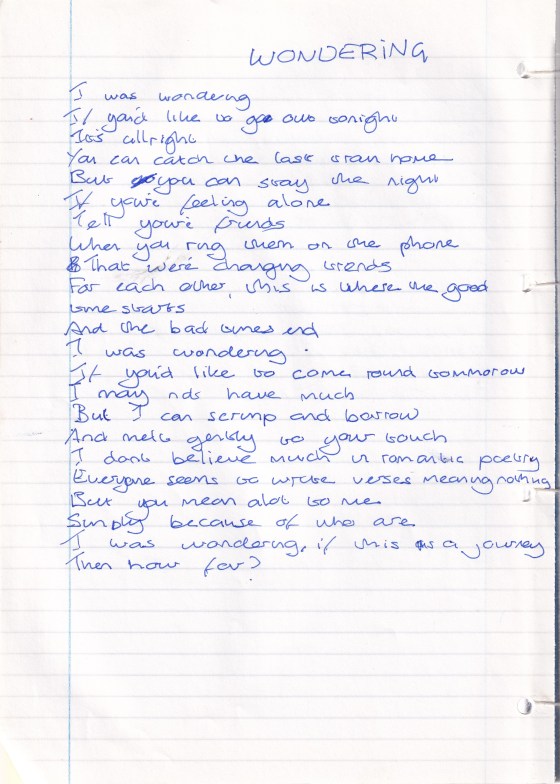 WONDERING
I was wondering
If you'd like to go out tonight
It's allright
You can catch the last train home
But you can stay the night
If you're feeling alone
Tell you're friends
When you ring them on the phone
That we're changing trends
For each other, this is where the good
time starts
And the bad times end
I was wondering
If you'd like to come round tommorow
I may not have much
But I can scrimp and borrow
And melt gently to your touch
I don't believe much in romantic poetry
Everyone seems to write verses meaning nothing
But you mean alot to me
Simply because of who are
I was wondering, if this is a journey
Then how far?